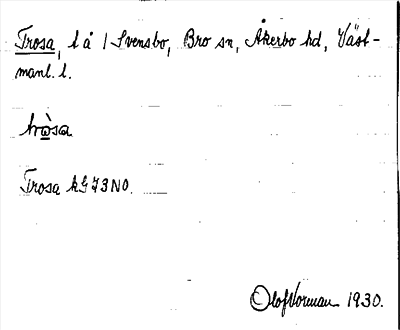 Trosa, l å / Svensbo, Bro sn, Åkerbo hd, Väst-
manl. l.
tròsa
Trosa kG 73NO.
Olof Norman 1930.